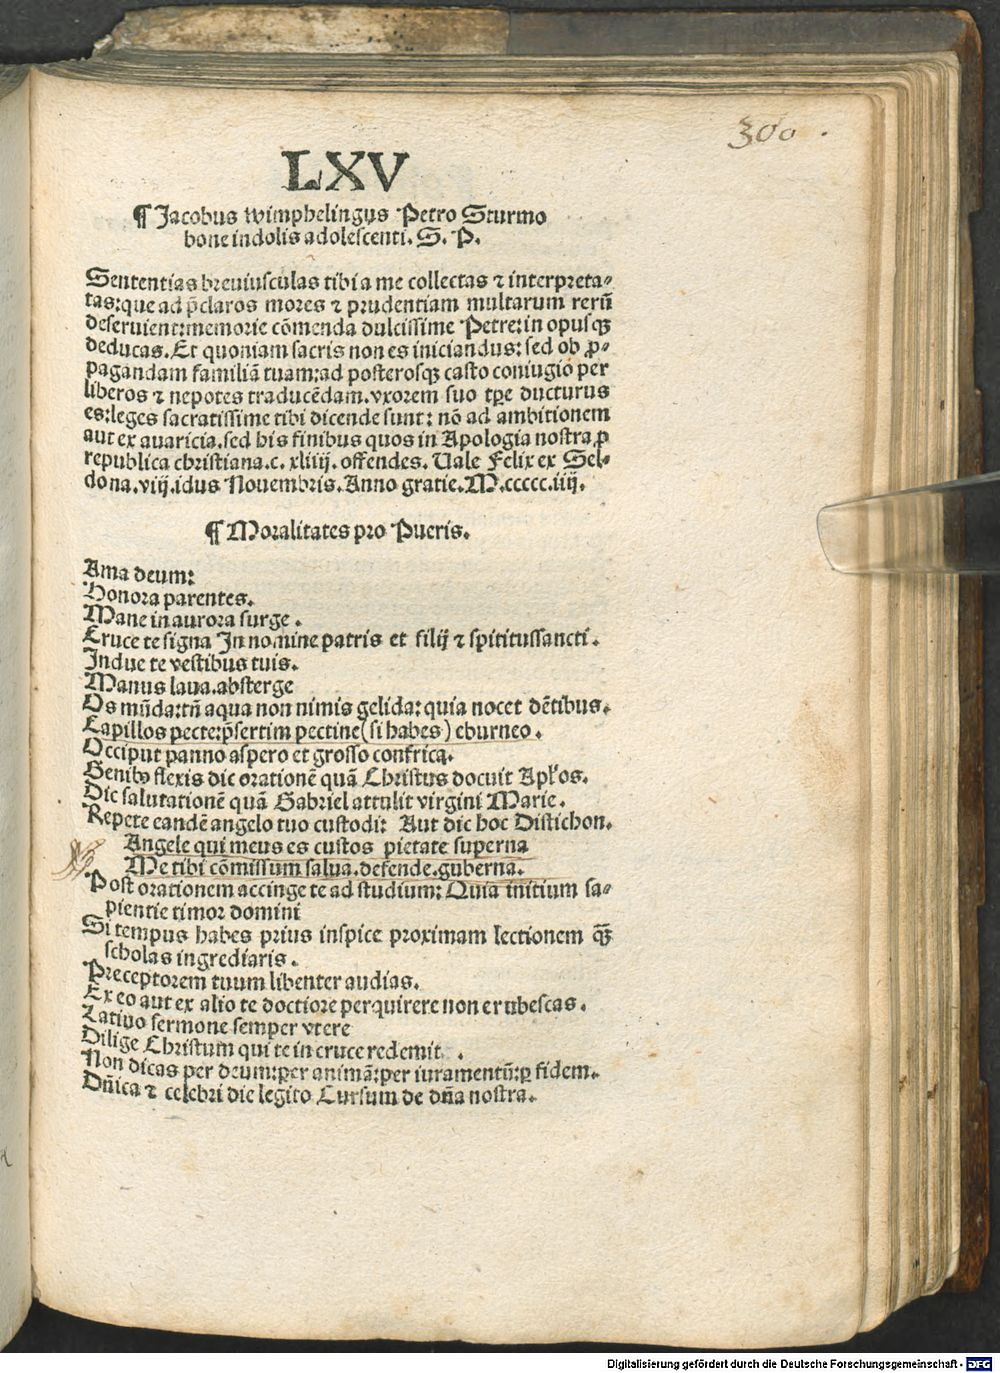 300 .
LXV
¶ Jacobus wimphelingus Petro Sturmo
bone indolis adolescenti. S. P.
Sententias breuiusculas tibi a me collectas ⁊ interpreta⸗
tas: que ad p̄claros mores ⁊ prudentiam multarum rerū
deseruient: memorie cōmenda dulcissime Petre: in opusqꝫ
deducas. Et quoniam sacris non es iniciandus: sed ob ꝓ⸗
pagandam familiā tuam: ad posterosqꝫ casto coniugio per
liberos ⁊ nepotes traducēdam. vxorem suo tp̄e ducturus
es: leges sacratissime tibi dicende sunt: nō ad ambitionem
aut ex auaricia. sed his finibus quos in Apologia nostra ꝓ
republica christiana. c. xliiij. offendes. Uale Felix ex Sel⸗
dona. viij. idus Nouembris. Anno gratie. M. ccccc. iiij.
¶ Moralitates pro Pueris.
Ama deum:
Honora parentes.
Mane in aurora surge .
Cruce te signa In nomine patris et filij ⁊ spititussancti .
Indue te vestibus tuis.
Manus laua. absterge
Os mūda: tn̄ aqua non nimis gelida: quia nocet dētibus.
Capillos pecte: p̄sertim pectine (si habes) eburneo .
Occiput panno aspero et grosso confrica.
Genibꝰ flexis dic orationē quā Christus docuit Apl'os.
Dic salutationē quā Gabriel attulit virgini Marie .
Repete eandē angelo tuo custodi: Aut dic hoc Distichon.
Angele qui meus es custos pietate superna
Me tibi cōmissum salua. defende. guberna.
Post orationem accinge te ad studium: Quia initium sa⸗
pientie timor domini
Si tempus habes prius inspice proximam lectionem qꝫ̄
scholas ingrediaris .
Preceptorem tuum libenter audias.
Ex eo aut ex alio te doctiore perquirere non erubescas .
Latino sermone semper vtere
Dilige Christum qui te in cruce redemit .
Non dicas per deum: per animā: per iuramentū: ꝑ fidem.
Dn̄ica ⁊ celebri die legito Cursum de dn̄a nostra.
Digitalisierung gefördert durch die Deutsche Forschungsgemeinschaft - DFG